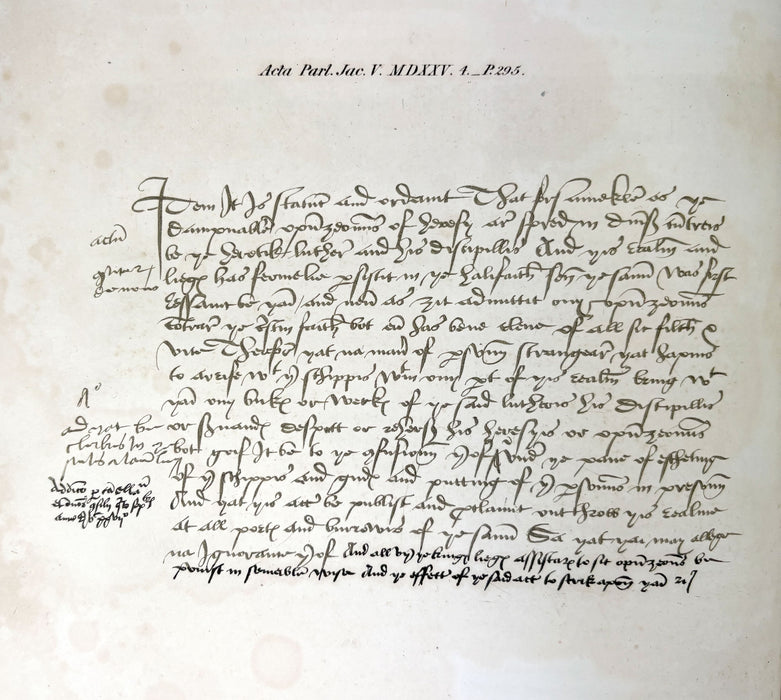 Acta Parl. Jac. V. MDXXV. 4. _ P. 295.
Item It Is statut and ordanit That forsamekle as ye
dampnable opunzeouns of heresy ar spred in diuerß cuntreis
be ye heretik luther and his discipillis And yis realm and
liegis has fermelie persistit in ye halifaith sen ye samin was first
ressauit be yaim and neuer as zit admittit ony opunzeouns
contrar ye cristin faith bot euer has bene clene of all sic filth &
vice Therfor yat na maner of persoun strangear yat hapnis
to arrife wt yr schippis wtin ony pt of yis realm bring wt
yaim ony bukis or werkis of ye said lutheris his discipillis
or seruandis desput or reherß his heresyis or opunzeouns
bot gif It be to ye confusioun yrof vnder ye pane of escheting
of yr schippis and gudis and putting of yr persouns in presoun
And yat yis act be publist and proclamit outthrow yis realme
at all portis and burrowis of ye samin Sa yat yai may allege
na Ignorance yrof And all vyr ye kingis liegis assistaris to sic opunzeouns be
punist in semeable wise And ye effect of ye said act to strik apoun yaim